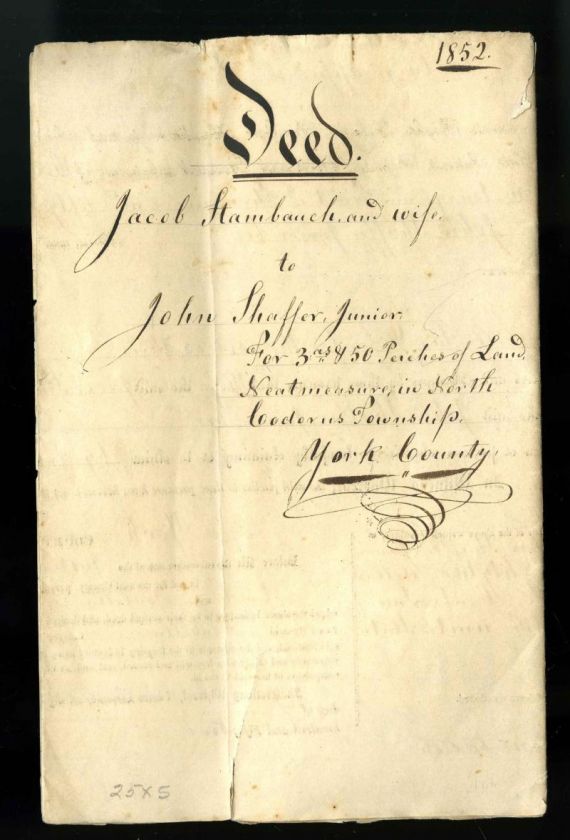 1852.
Deed.
Jacob Stambauch and wife.
to
John Shaffer, Junior,
For 3 as & 50 Perches of Land
Neatmeasure, in North
Codorus Township.
York County.
25x5